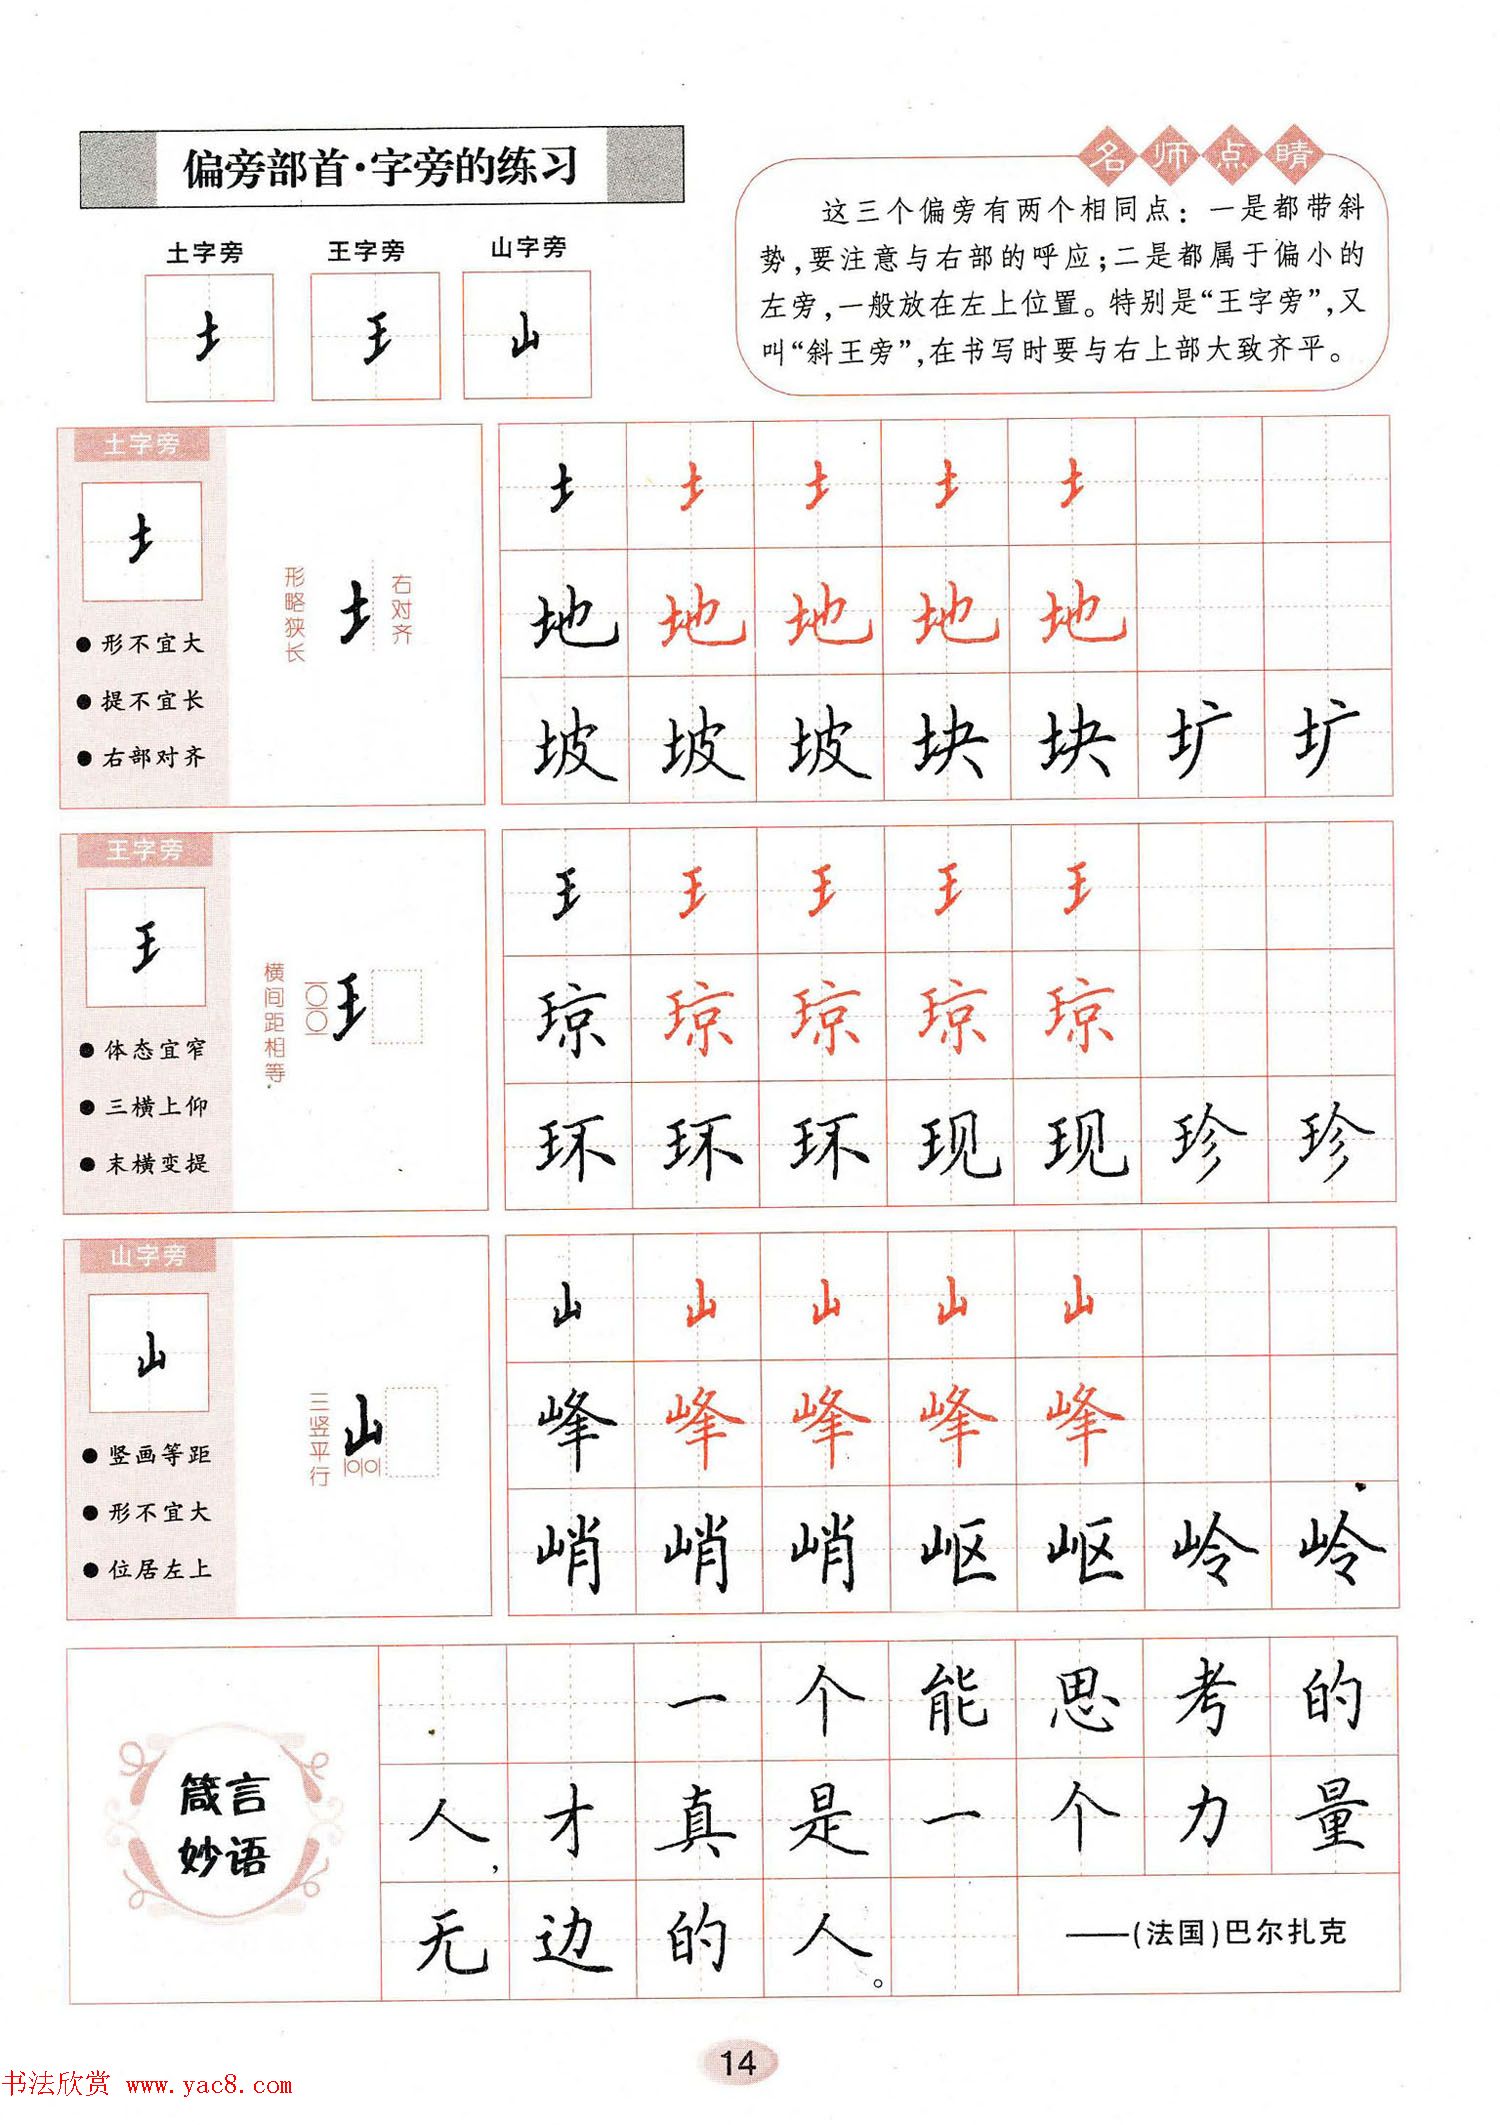 偏旁部首·字旁的练习
名师点睛
这三个偏旁有两个相同点：一是都带斜
势，要注意与右部的呼应；二是都属于偏小的
左旁，一般放在左上位置。特别是“王字旁”，又
叫“斜王旁”，在书写时要与右上部大致齐平。
土字旁 王字旁 山字旁
土 王 山
土字旁
土
●形不宜大
●提不宜长
●右部对齐
形略狭长
土
右对齐
土 土 土 土 土
地 地 地 地 地
坡 坡 坡 块 块 圹 圹
王字旁
王
●体态宜窄
●三横上仰
●末横变提
横间距相等
王
王 王 王 王 王
琼 琼 琼 琼 琼
环 环 环 现 现 珍 珍
山字旁
山
●竖画等距
●形不宜大
●位居左上
三竖平行
山
山 山 山 山 山
峰 峰 峰 峰 峰
峭 峭 峭 岖 岖 岭 岭
箴言
妙语
一个能思考的
人，才真是一个力量
无边的人。
——(法国)巴尔扎克
14
书法欣赏 www.yac8.com